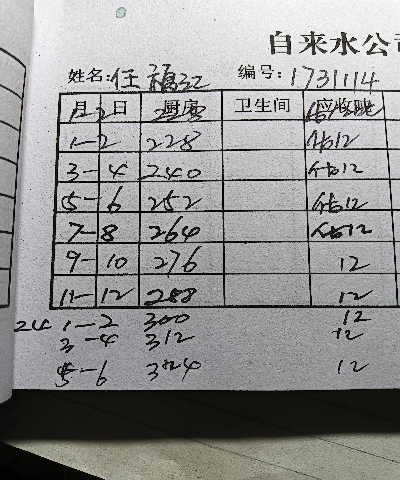 自来水公司
姓名: 任福江 编号: 1731114
月 日 厨房 卫生间 应收吨
1-2 228 估12
3-4 240 估12
5-6 252 估12
7-8 264 估12
9-10 276 12
11-12 288 12
24 1-2 300 12
3-4 312 12
5-6 324 12